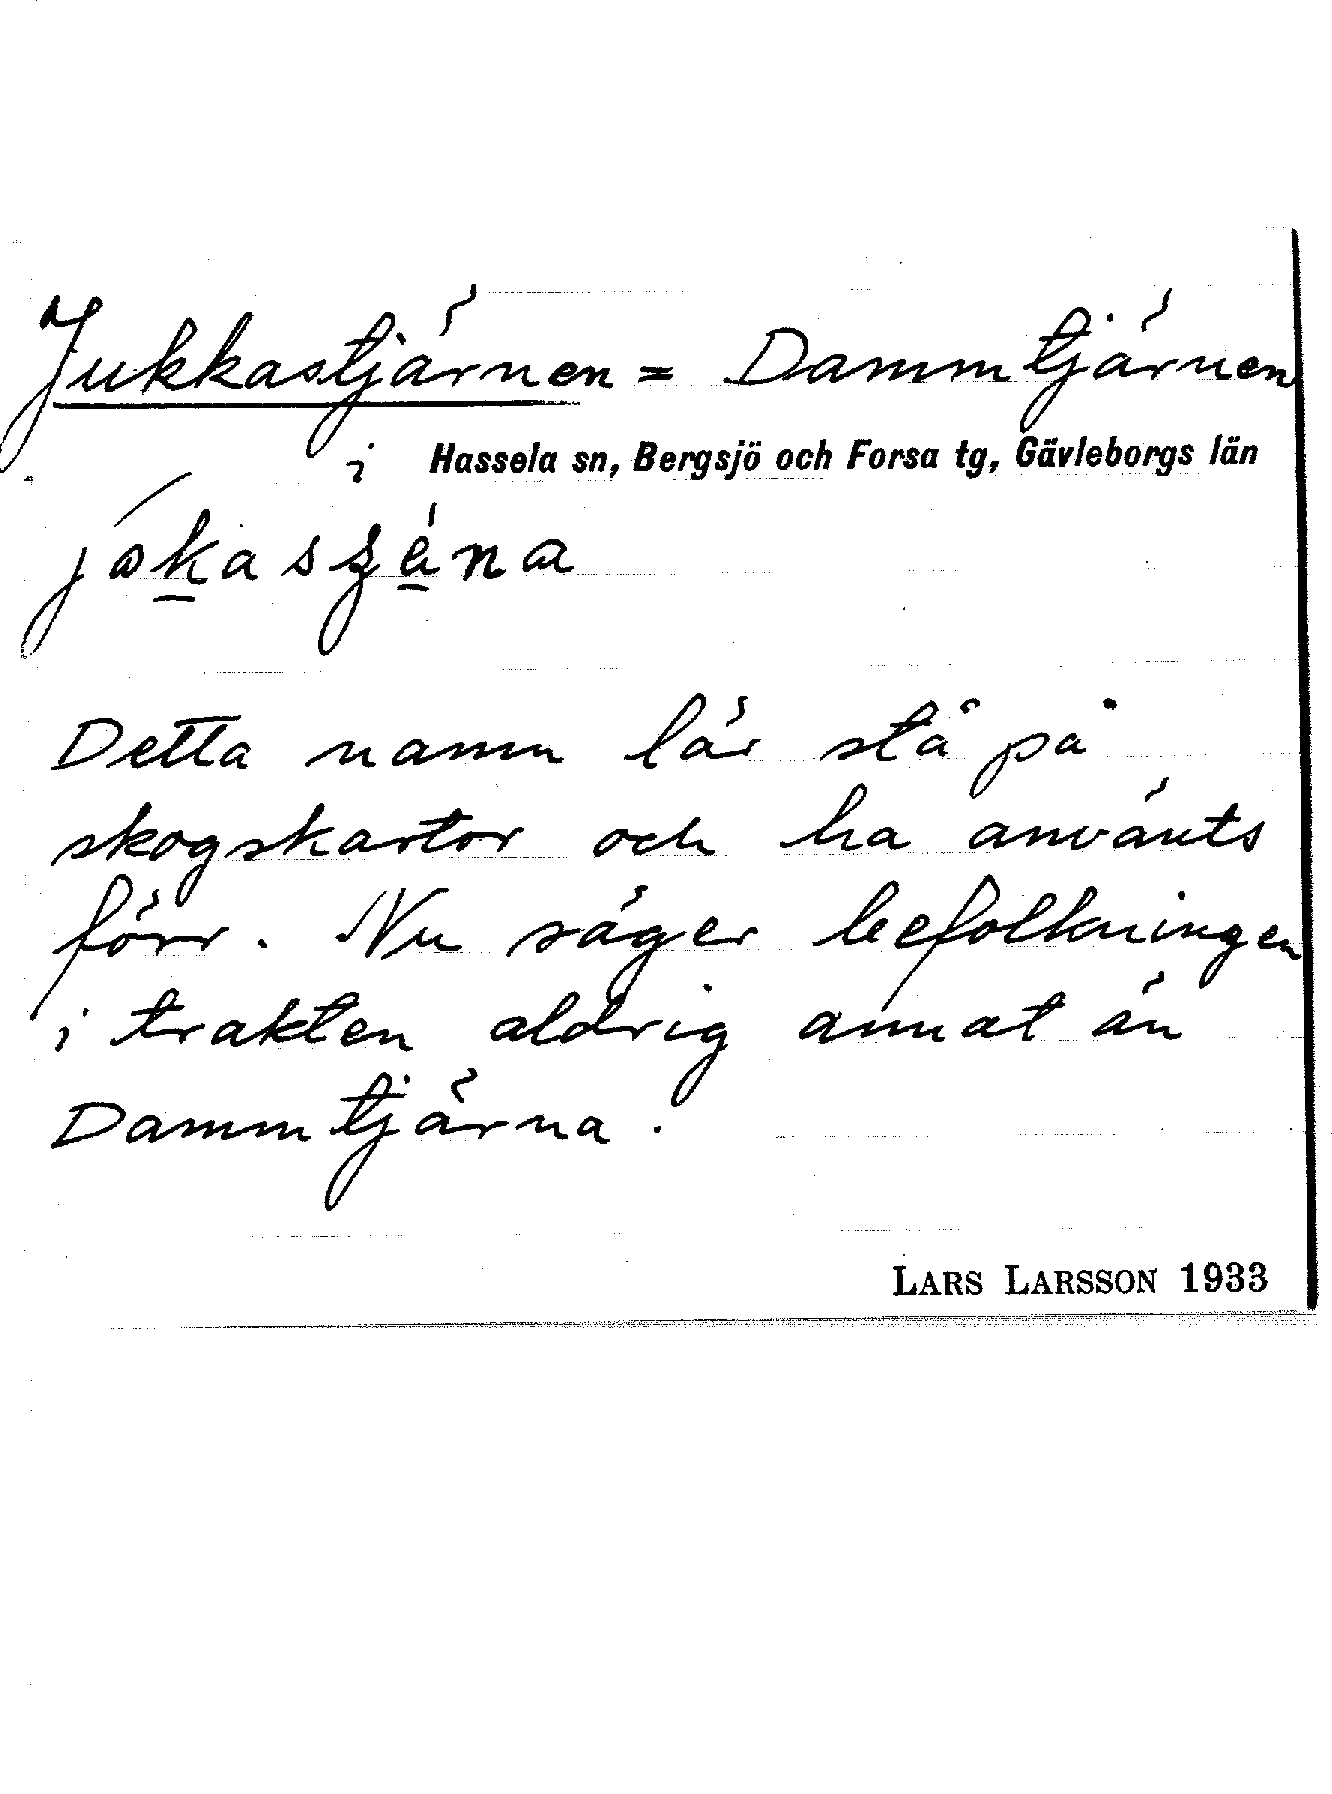 Jukkastjärnen = Dammtjärnen
i Hassela sn, Bergsjö och Forsa tg, Gävleborgs län
Detta namn lär stå på
skogskartor och ha använts
förr. Nu säger befolkningen
i trakten aldrig annat än
Dammtjärna.
LARS LARSSON 1933